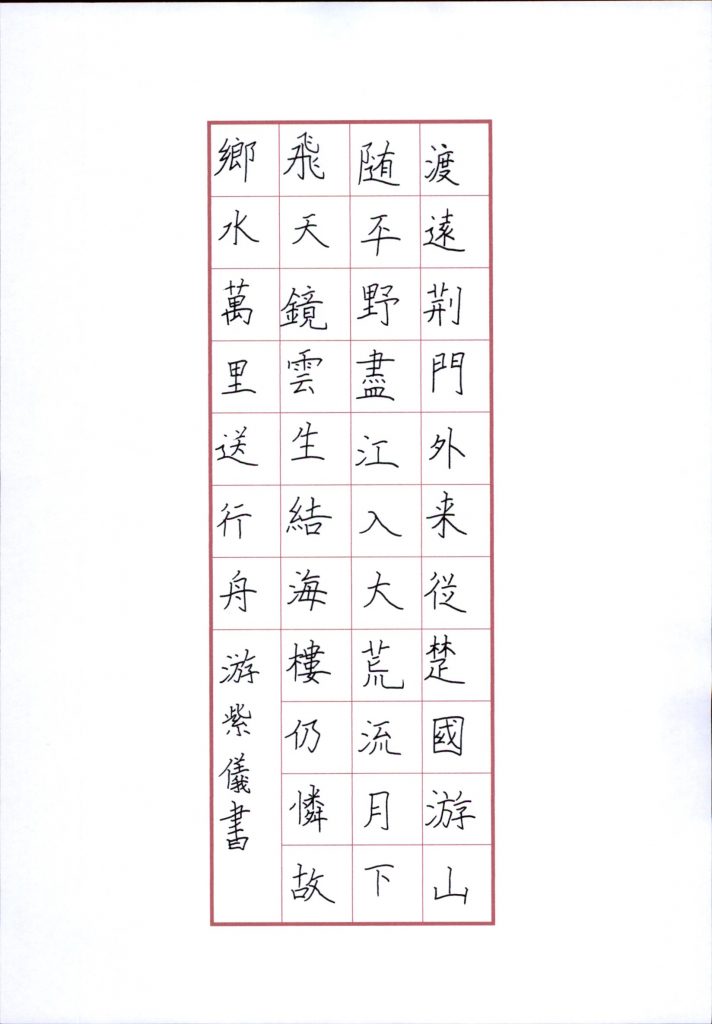 渡遠荆門外来從楚國游山
随平野盡江入大荒流月下
飛天鏡雲生結海樓仍憐故
鄉水萬里送行舟
游紫儀書